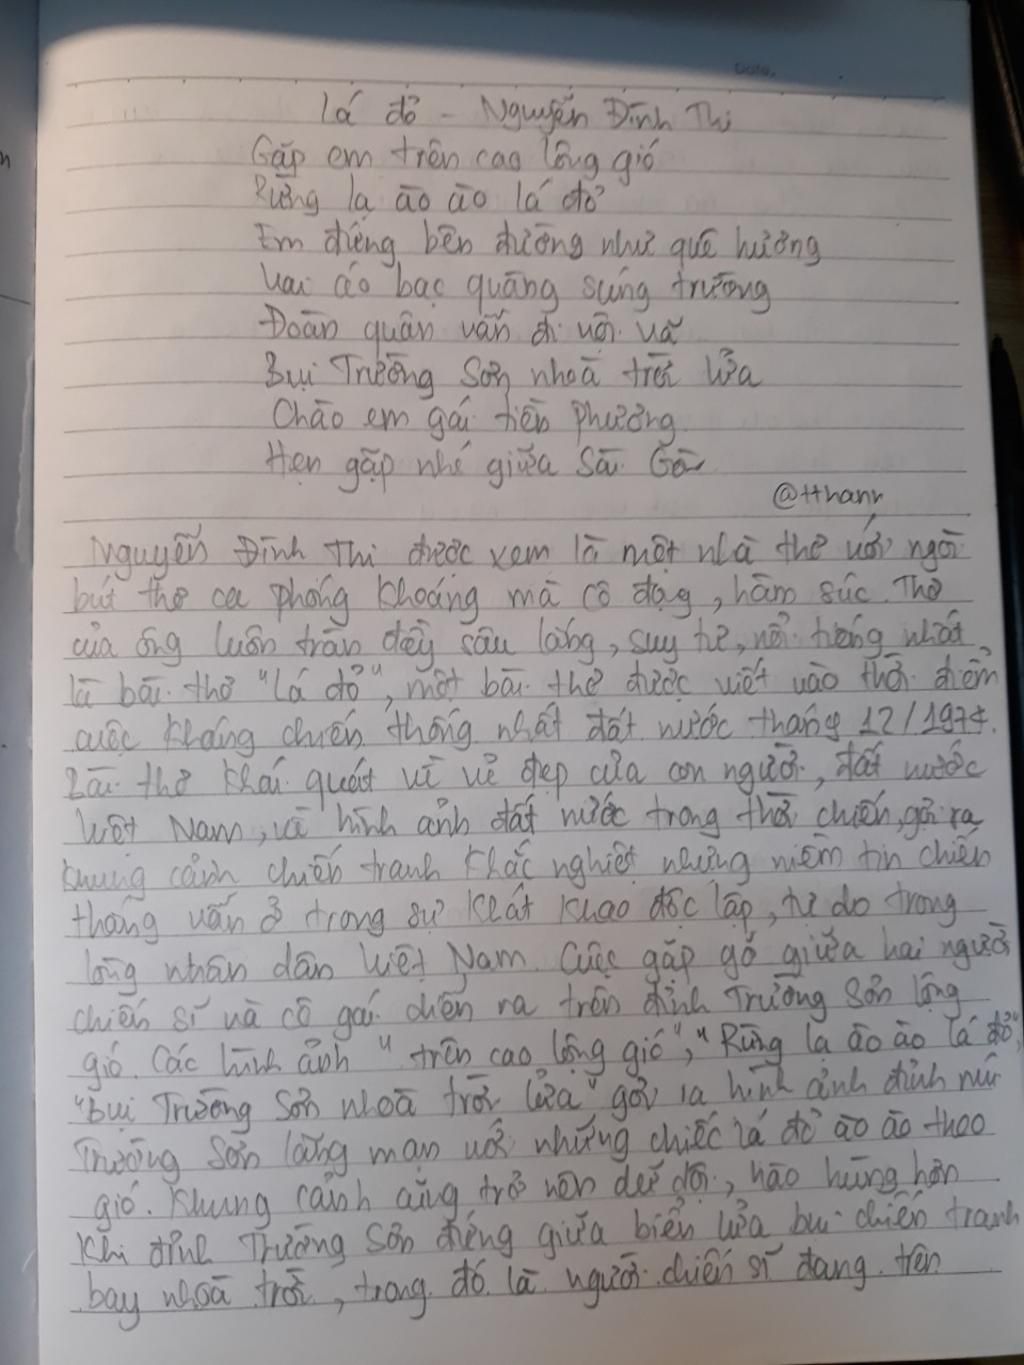 Date,
Lá đỏ - Nguyễn Đình Thi
Gặp em trên cao lộng gió
Rừng lạ ào ào lá đỏ
Em đứng bên đường như quê hương
Vai áo bạc quàng súng trường
Đoàn quân vẫn đi vội vã
Bụi Trường Sơn nhoà trời lửa
Chào em gái tiền phương
Hẹn gặp nhé giữa Sài Gòn
@tthanh
Nguyễn Đình Thi được xem là một nhà thơ với ngòi
bút thơ ca phóng khoáng mà cô đọng, hàm súc. Thơ
của ông luôn tràn đầy sâu lắng, suy tư, nổi tiếng nhất
là bài thơ "Lá đỏ", một bài thơ được viết vào thời điểm
cuộc kháng chiến thống nhất đất nước tháng 12/1974.
Bài thơ khái quát về vẻ đẹp của con người, đất nước
Việt Nam, về hình ảnh đất nước trong thời chiến, gợi ra
khung cảnh chiến tranh khắc nghiệt nhưng niềm tin chiến
thắng vẫn ở trong sự khát khao độc lập, tự do trong
lòng nhân dân Việt Nam. Cuộc gặp gỡ giữa hai người
chiến sĩ và cô gái diễn ra trên đỉnh Trường Sơn lộng
gió. Các hình ảnh "trên cao lộng gió", "Rừng lạ ào ào lá đỏ",
"bụi Trường Sơn nhoà trời lửa" gợi ra hình ảnh đỉnh núi
Trường Sơn lãng mạn với những chiếc lá đỏ ào ào theo
gió. Khung cảnh cũng trở nên dữ dội, hào hùng hơn
khi đỉnh Trường Sơn đứng giữa biển lửa bụi chiến tranh
bay nhoà trời, trong đó là người chiến sĩ đang trên